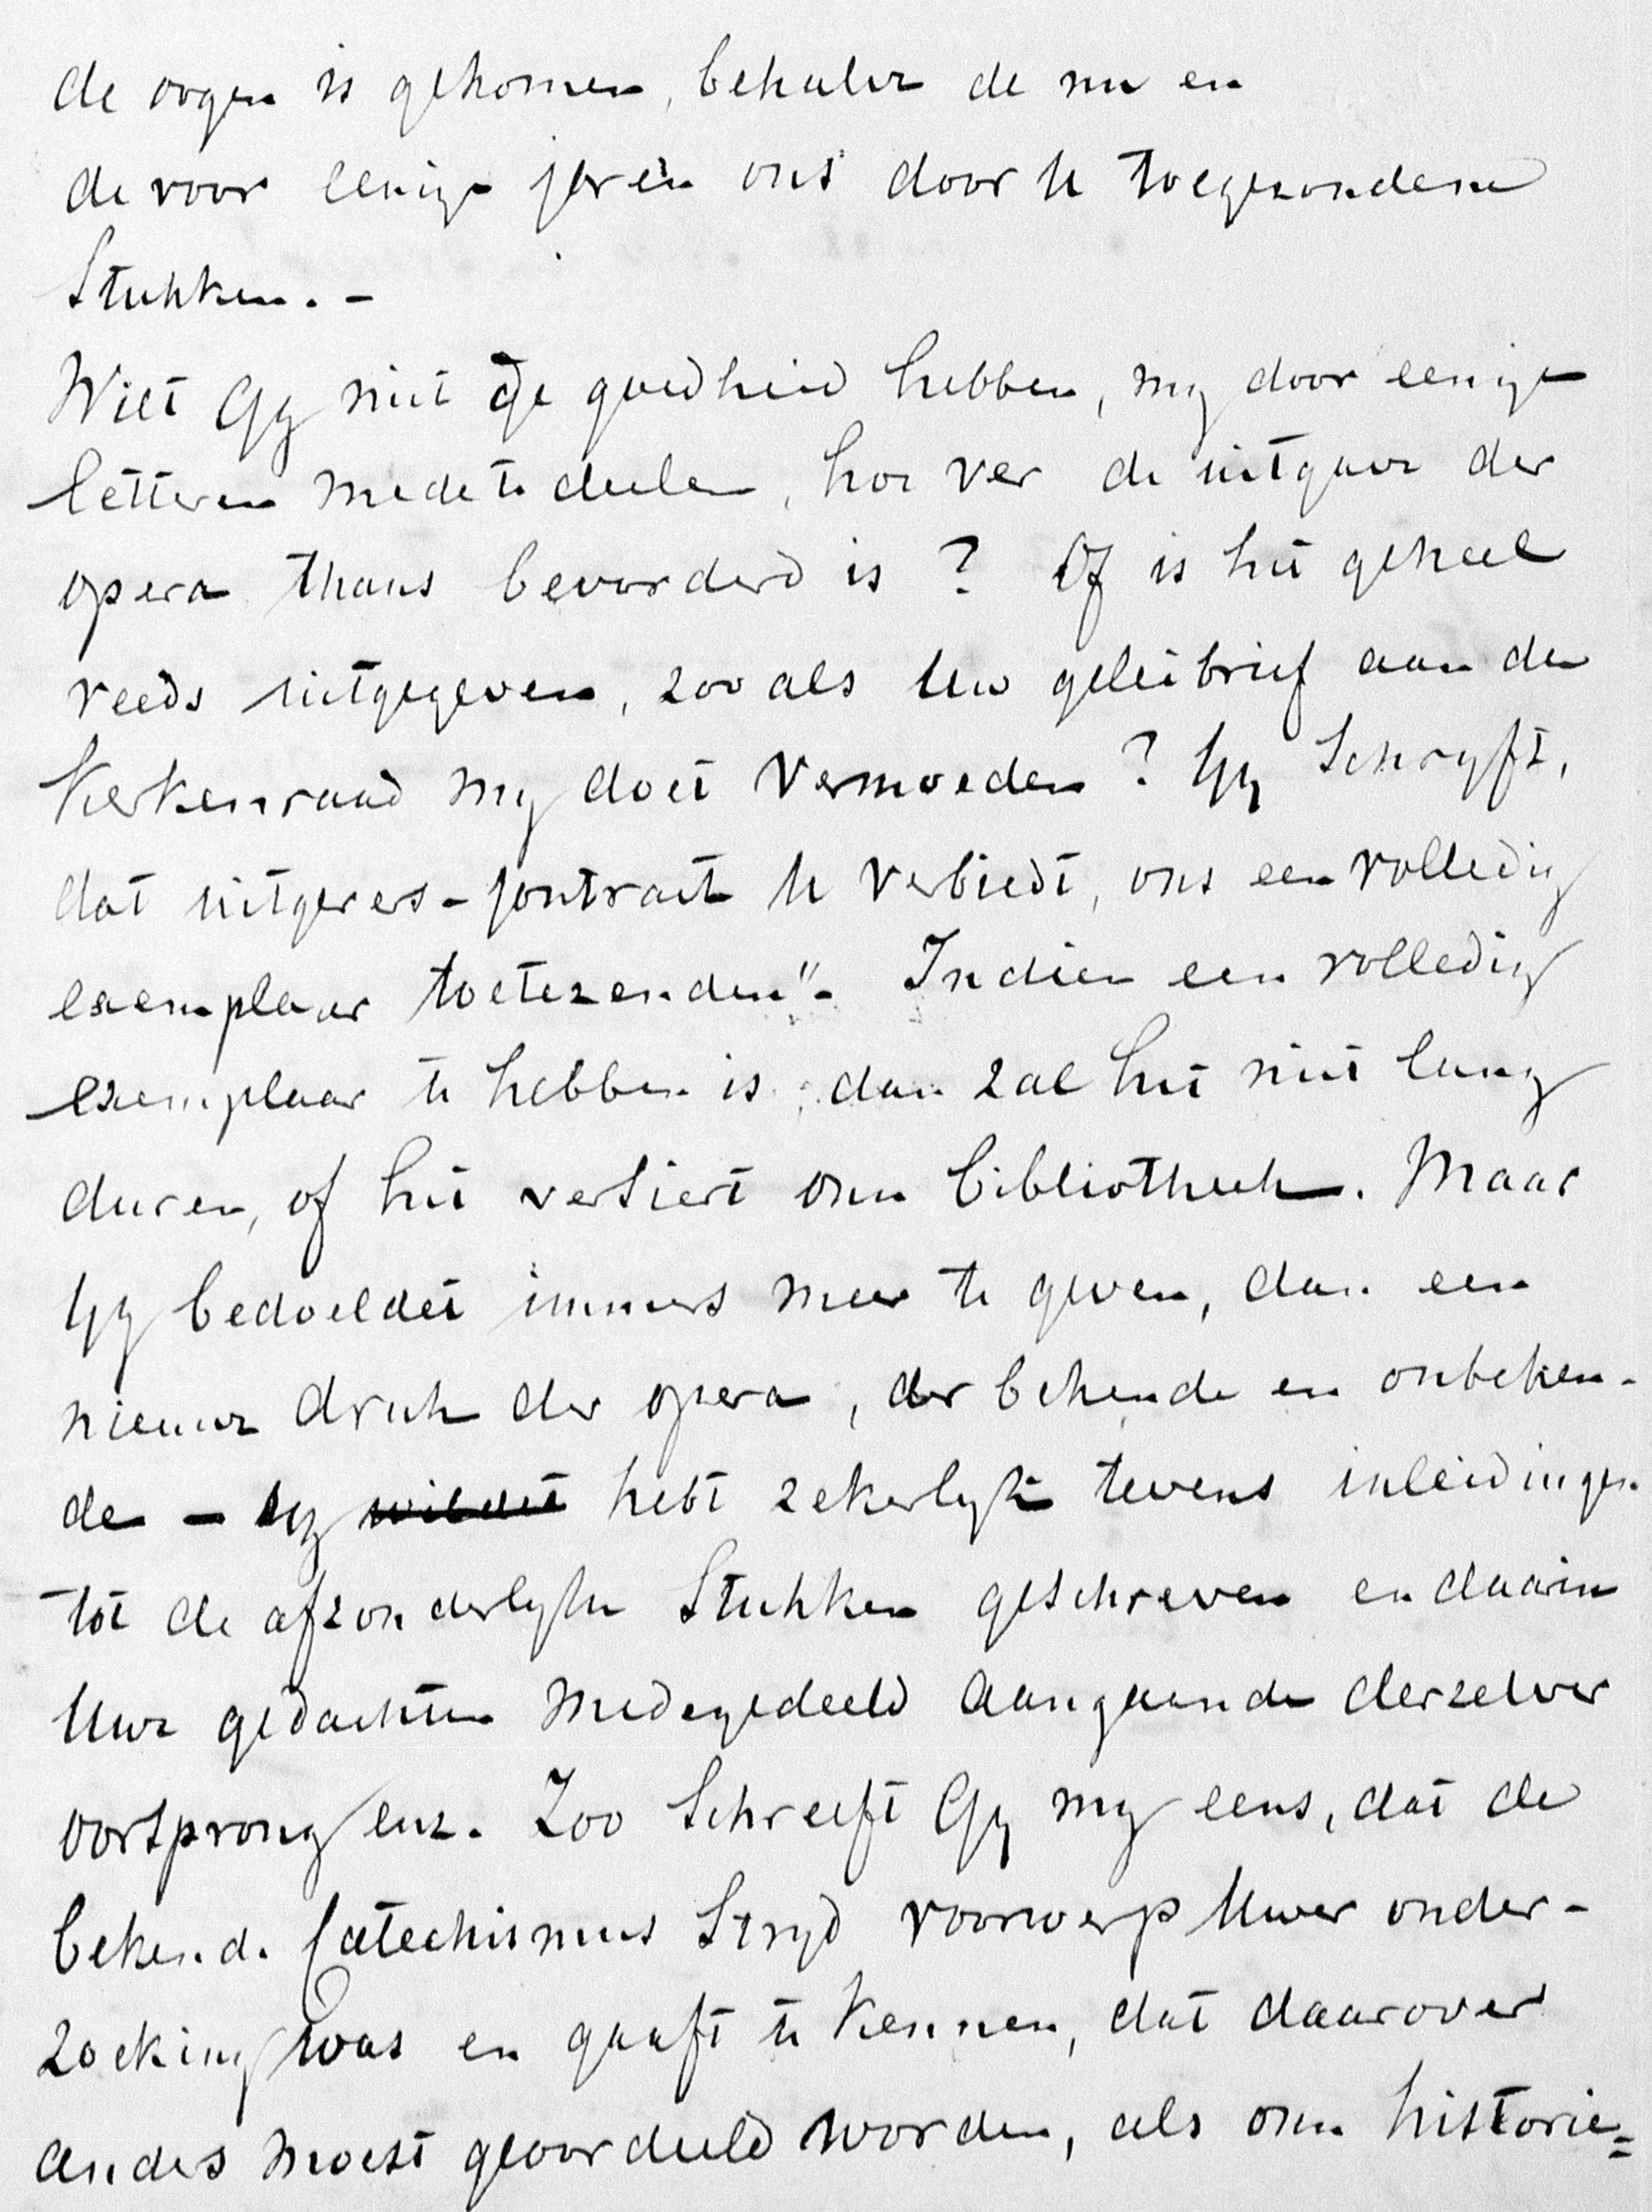 de oogen is gekomen, behalve de nu en
de voor eenige jaren ons door U toegezondene
Stukken. -
Wilt Gy niet de goedheid hebben, my door eenige
letteren mede te deelen, hoe ver de uitgave der
opera thans bevorderd is? Of is het geheel
reeds uitgegeven, zooals Uw geleibrief aan den
Kerkenraad my doet vermoeden? Gy schryft,
dat uitgevers-contract U verbiedt, ons een volledig
exemplaar toetezenden". Indien een volledig
exemplaar te hebben is, dan zal het niet lang
duren, of het versiert onze bibliotheek. Maar
Gy bedoeldet immers meer te geven, dan een
nieuwe druk der opera, der bekende en onbeken-
de - Gy wildet hebt zekerlyk tevens inleidingen
tot de afzonderlyke Stukken geschreven en daarin
Uwe gedachten medegedeeld aangaande derzelver
oorsprong enz. Zoo schreeft Gy my eens, dat de
bekende Catechismus Stryd voorwerp Uwer onder-
zoeking was en gaaft te kennen, dat daarover
anders moest geoordeeld worden, als onze historie=